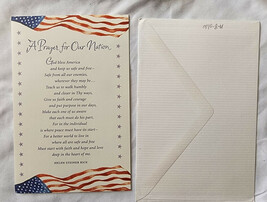 A Prayer for Our Nation
God bless America
and keep us safe and free—
Safe from all our enemies,
wherever they may be...
Teach us to walk humbly
and closer in Thy ways,
Give us faith and courage
and put purpose in our days.
Make each one of us aware
that each must do his part,
For in the individual
is where peace must have its start—
For a better world to live in
where all are safe and free
Must start with faith and hope and love
deep in the heart of me.
HELEN STEINER RICE